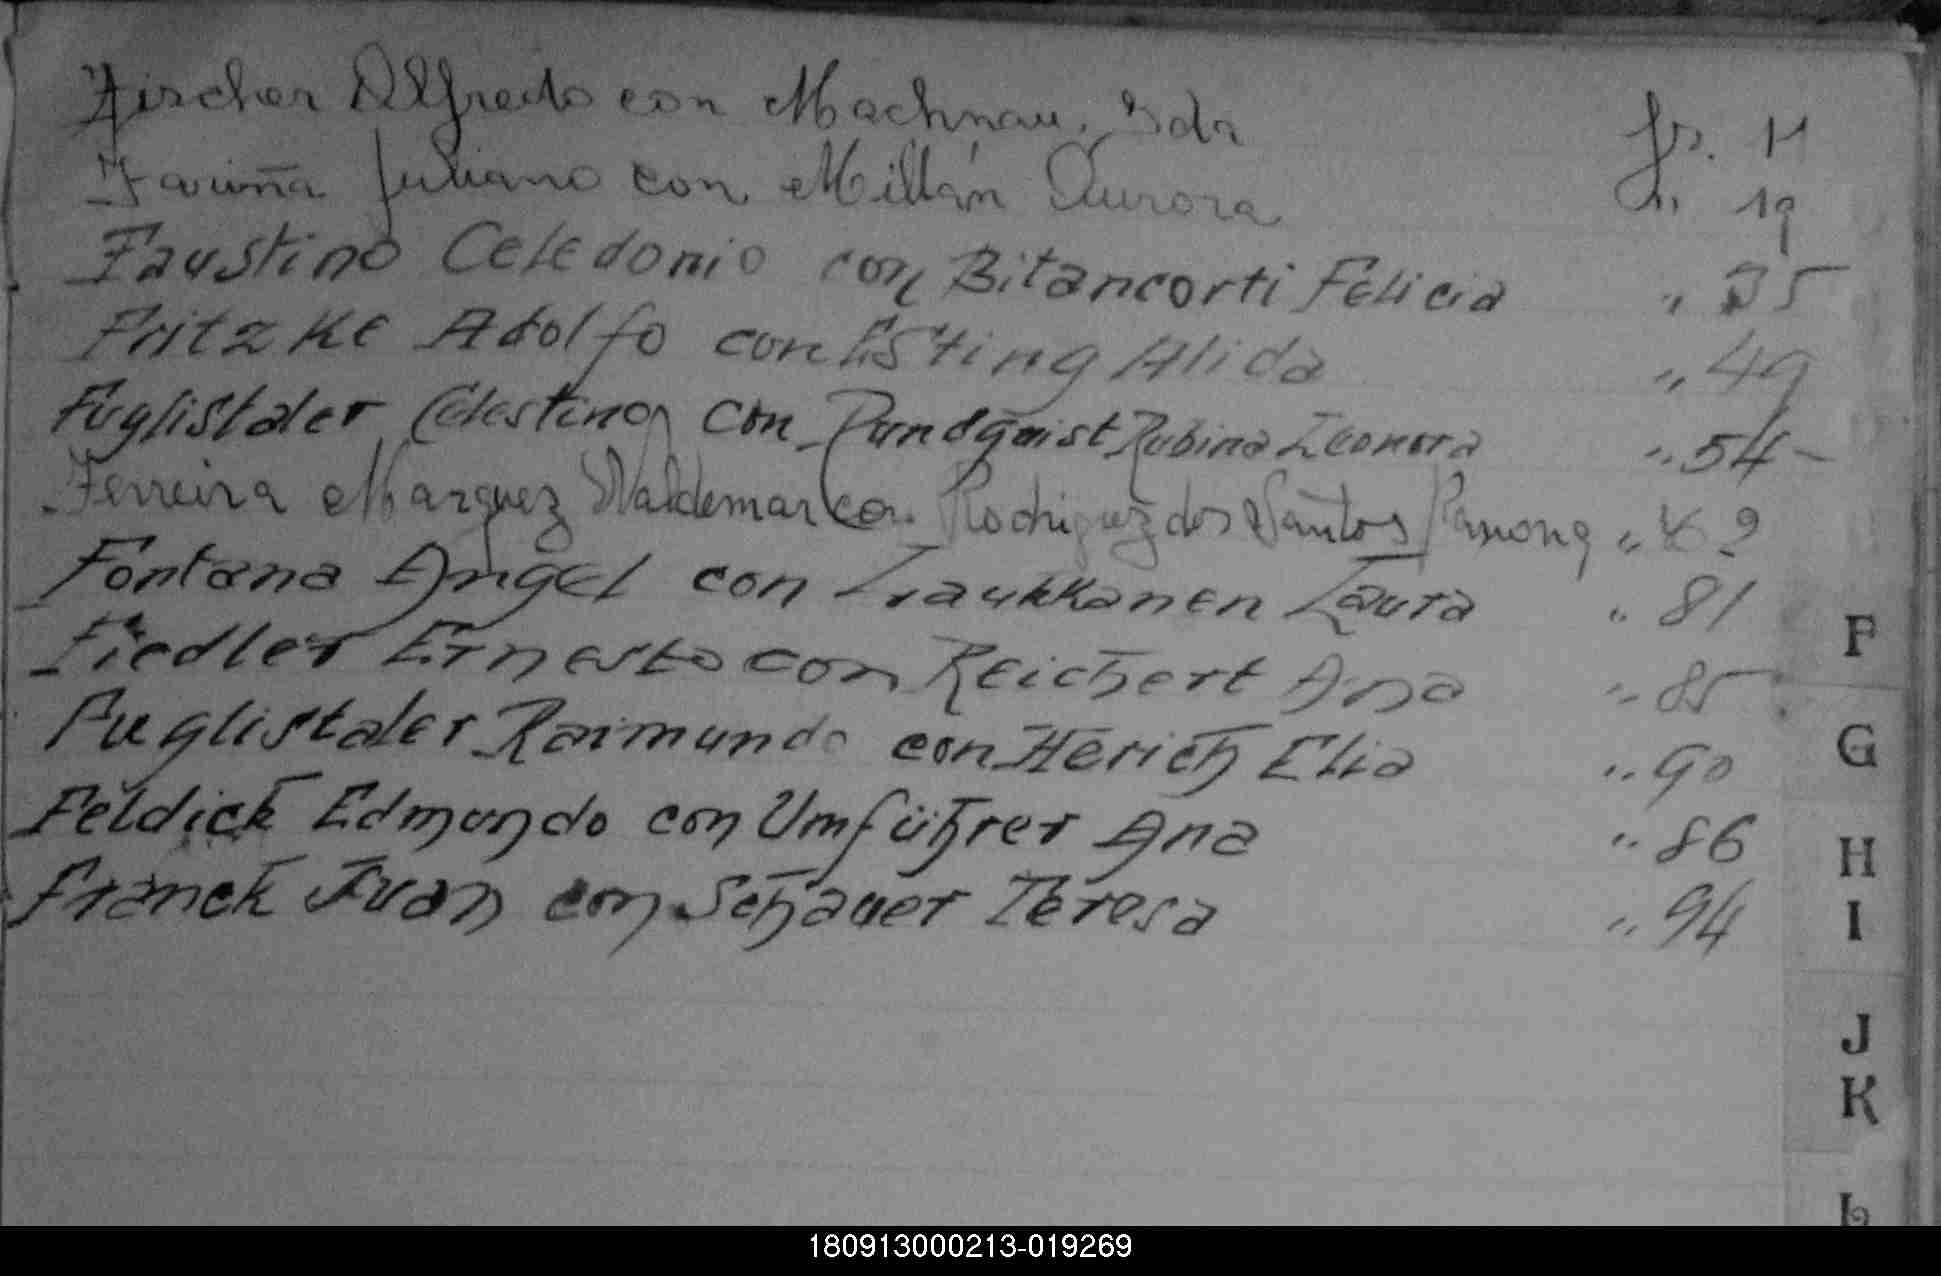 Fischer Alfredo con Machnau, Ida fs. 11
Fariña Juliano con Millán Aurora fs. 19
Faustino Celedonio con Bitancorti Felicia " 35
Fritzke Adolfo con Esting Alida " 49
Fuglistaler Celestino con Rundquist Rubina Leonora " 54-
Ferreira Marquez Waldemar con Rodriguez dos Santos Ramona "
Fontana Angel con Liaukkanen Laura " 81
Fiedler Ernesto con Reichert Ana " 85
Fuglistaler Raimundo con Herich Elia " 90
Feldick Edmundo con Umführer Ana " 86
Franck Juan con Schauer Teresa " 94
F
G
H
I
J
K
L
180913000213-019269